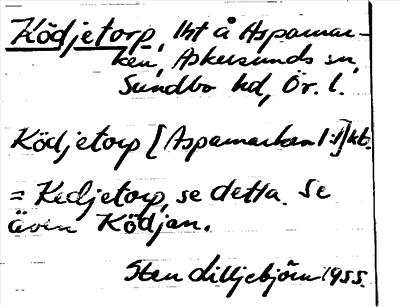 Ködjetorp, lht å Aspamar-
ken, Askersunds sn,
Sundbo hd, Ör. l.
Ködjetorp [Aspamarken 1:1] kb.
= Kedjetorp, se detta. Se
även Ködjan.
Sten Lilljebjörn 1955.